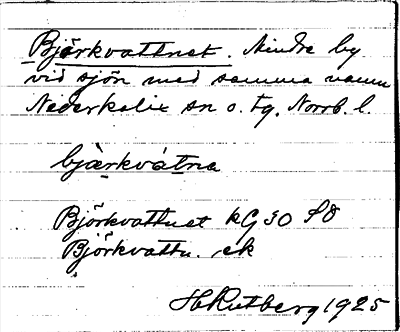 Björkvattnet. Mindre by
vid sjön med samma namn
Nederkalix sn o. tg. Norrb. l.
bjàrkvátna
Björkvattnet kG 30 SO
Björkvattn. ek
H Rutberg 1925